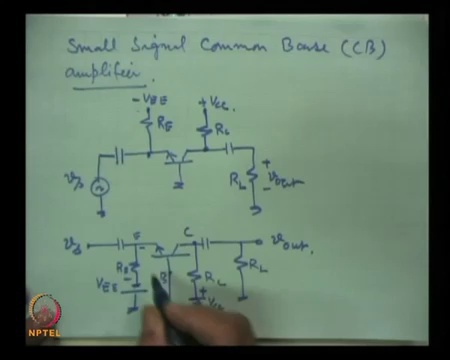 Small Signal Common Base (CB)
amplifier.
-VEE +VCC
RE RL
vs RL + vout -
vs E C vout.
RE - B RL RL
VEE + VCC
NPTEL